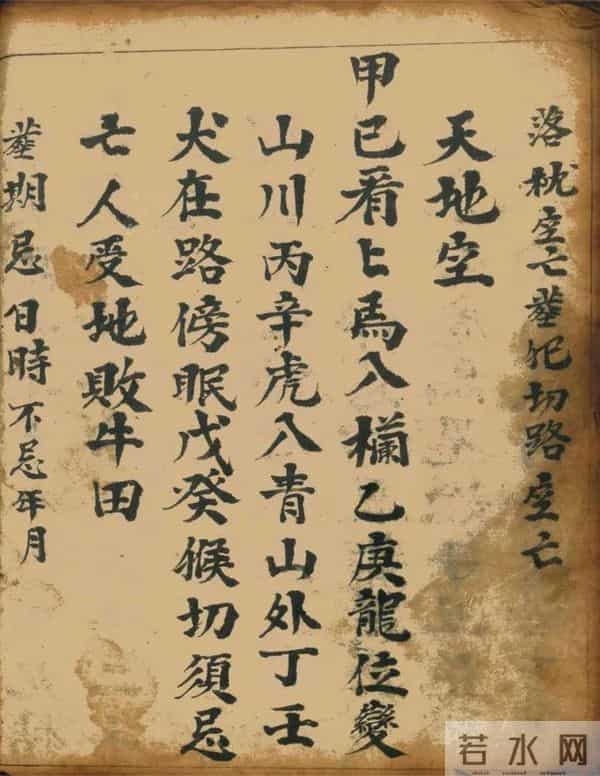 落枕空亡塟犯切路空亡
天地空
甲已看上馬八欄乙庚龍位變
山川丙辛虎八青山外丁壬
犬在路傍眠戊癸猴切須忌
亡人受地敗牛田
塟期忌日時不忌年月
若水网